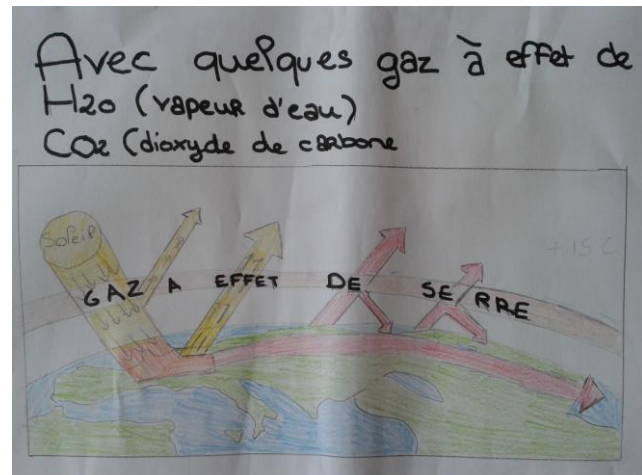 Avec quelques gaz à effet de
H2O (vapeur d'eau)
CO2 (dioxyde de carbone
Soleil
+15 C
GAZ A EFFET DE SERRE